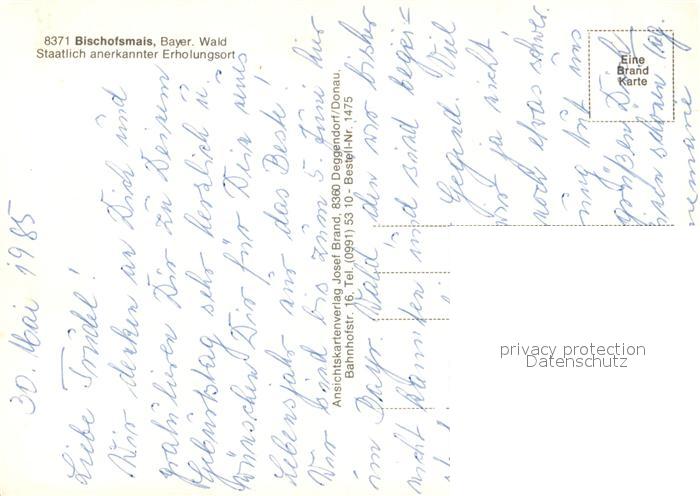 8371 Bischofsmais, Bayer. Wald
Staatlich anerkannter Erholungsort
Eine
Brand
Karte
Ansichtskartenverlag Josef Brand, 8360 Deggendorf/Donau,
Bahnhofstr. 16, Tel. (0991) 53 10 - Bestell-Nr. 1475
30. Mai 1985
Liebe Trudel!
Wir denken an Dich und
gratulieren Dir zu Deinem
Geburtstag sehr herzlich u.
wünschen Dir für Dein neues
Lebensjahr nur das Beste!
Wir sind bis zum 5. Juni hier
im Bayr. Wald, den wir bisher
nicht kannten und sind begei=
Gegend. Viel
wir ja nicht
noch etwas schwer.
uns
grüßen Dich
schönen Tag.
privacy protection
Datenschutz